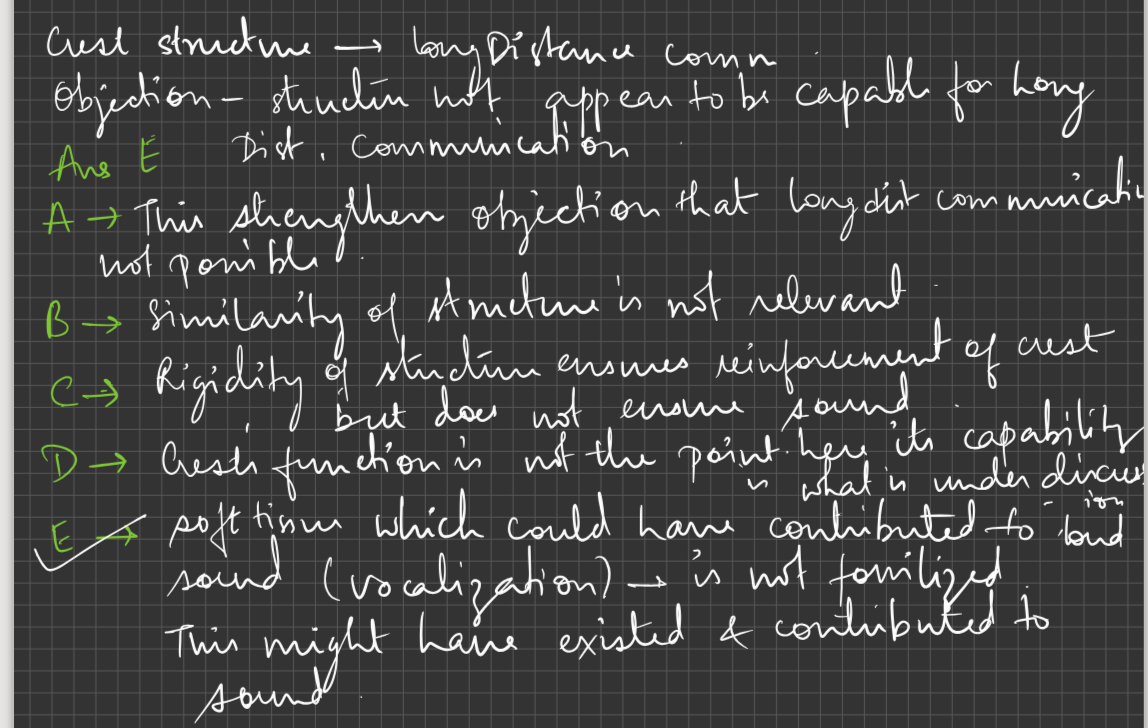 Crest structure → long Distance comn
Objection - structure not appear to be capable for Long
Dist. Communication
Ans E
A → This strengthen objection that long dist communicati
not possible.
B → Similarity of structure is not relevant.
C → Rigidity of structure ensures reinforcement of crest
but does not ensure sound.
D → Crests function is not the point. here its capability
is what is under discuss
ion
E → soft tissue which could have contributed to loud
sound (vocalization) → is not fossilized.
This might have existed & contributed to
sound.